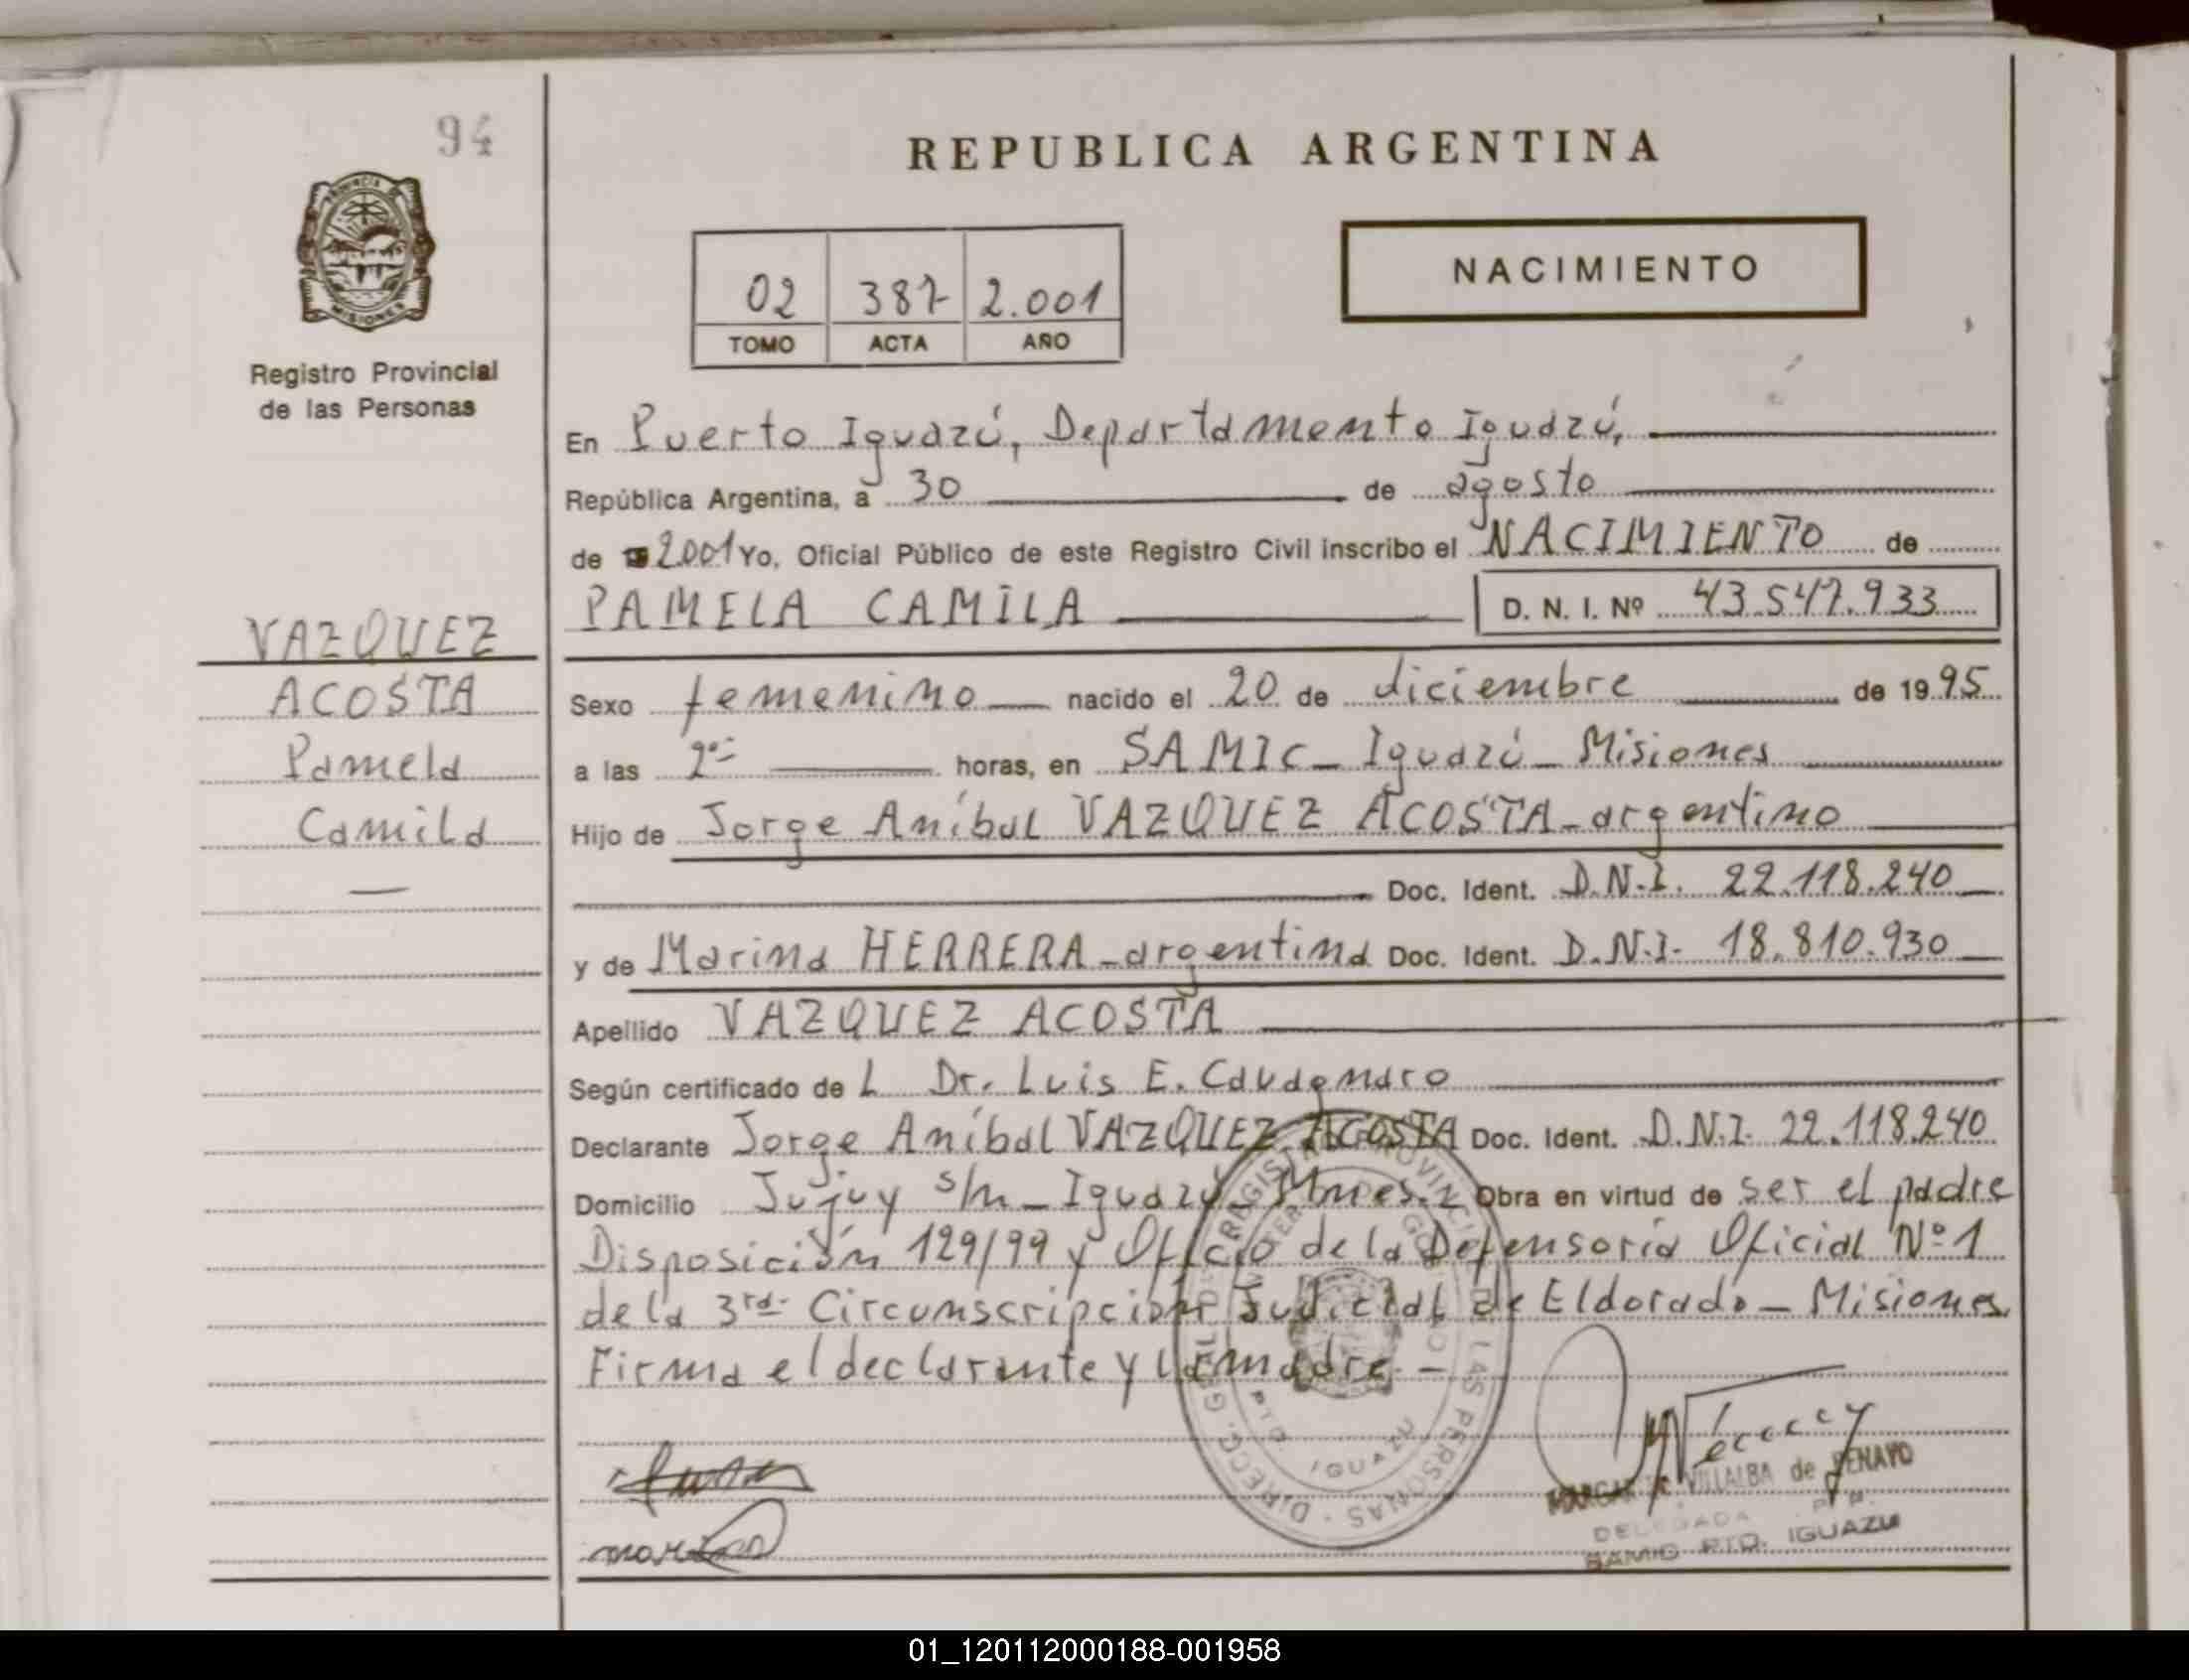 94
REPUBLICA ARGENTINA
PROVINCIA DE
MISIONES
Registro Provincial
de las Personas
02 387 2.001
TOMO ACTA AÑO
NACIMIENTO
En Puerto Iguazú, Departamento Iguazú,
República Argentina, a 30 de agosto
de 2.001 Yo, Oficial Público de este Registro Civil inscribo el NACIMIENTO de
PAMELA CAMILA D. N. I. Nº 43.547.933
VAZQUEZ
ACOSTA
Pamela
Camila
Sexo femenino nacido el 20 de diciembre de 1995
a las horas, en SAMIC - Iguazú - Misiones
Hijo de Jorge Aníbal VAZQUEZ ACOSTA - argentino
Doc. Ident. D.N.I. 22.118.240
y de Marina HERRERA - argentina Doc. Ident. D.N.I. 18.810.930
Apellido VAZQUEZ ACOSTA
Según certificado de L Dr. Luis E.
Declarante Jorge Aníbal VAZQUEZ ACOSTA Doc. Ident. D.N.I. 22.118.240
Domicilio Jujuy s/n - Iguazú Mnes. Obra en virtud de ser el padre
Disposición 129/99 y Oficio de la Defensoría Oficial Nº 1
de la 3ra. Circunscripción Judicial de Eldorado - Misiones
Firma el declarante y la madre. -
DIRECC. GRAL. DEL REGISTRO PROVINCIAL DE LAS PERSONAS
PTO. IGUAZU
MARGARITA VILLALBA de PENAYO
DELEGADA
SAMIC PTO. IGUAZU
01_120112000188-001958